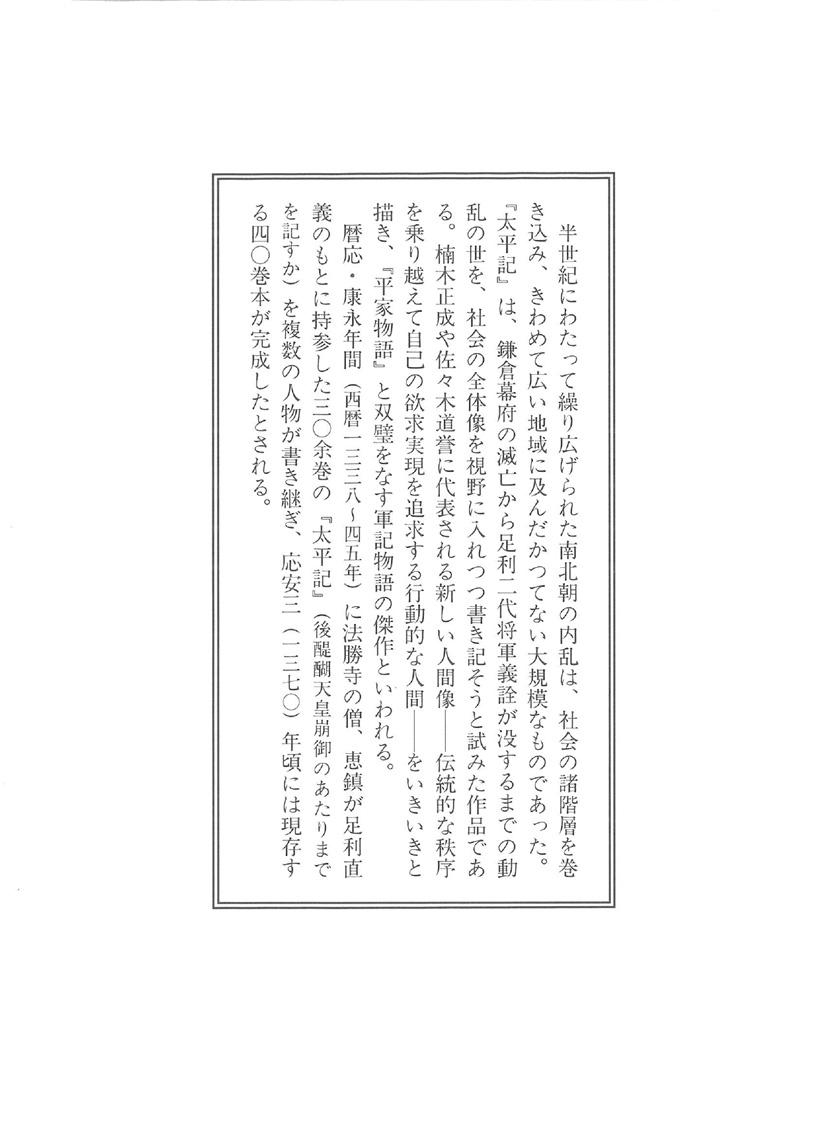 半世紀にわたって繰り広げられた南北朝の内乱は、社会の諸階層を巻
き込み、きわめて広い地域に及んだかつてない大規模なものであった。
『太平記』は、鎌倉幕府の滅亡から足利二代将軍義詮が没するまでの動
乱の世を、社会の全体像を視野に入れつつ書き記そうと試みた作品であ
る。楠木正成や佐々木道誉に代表される新しい人間像――伝統的な秩序
を乗り越えて自己の欲求実現を追求する行動的な人間――をいきいきと
描き、『平家物語』と双璧をなす軍記物語の傑作といわれる。
暦応・康永年間（西暦一三三八～四五年）に法勝寺の僧、恵鎮が足利直
義のもとに持参した三〇余巻の『太平記』（後醍醐天皇崩御のあたりまで
を記すか）を複数の人物が書き継ぎ、応安三（一三七〇）年頃には現存す
る四〇巻本が完成したとされる。